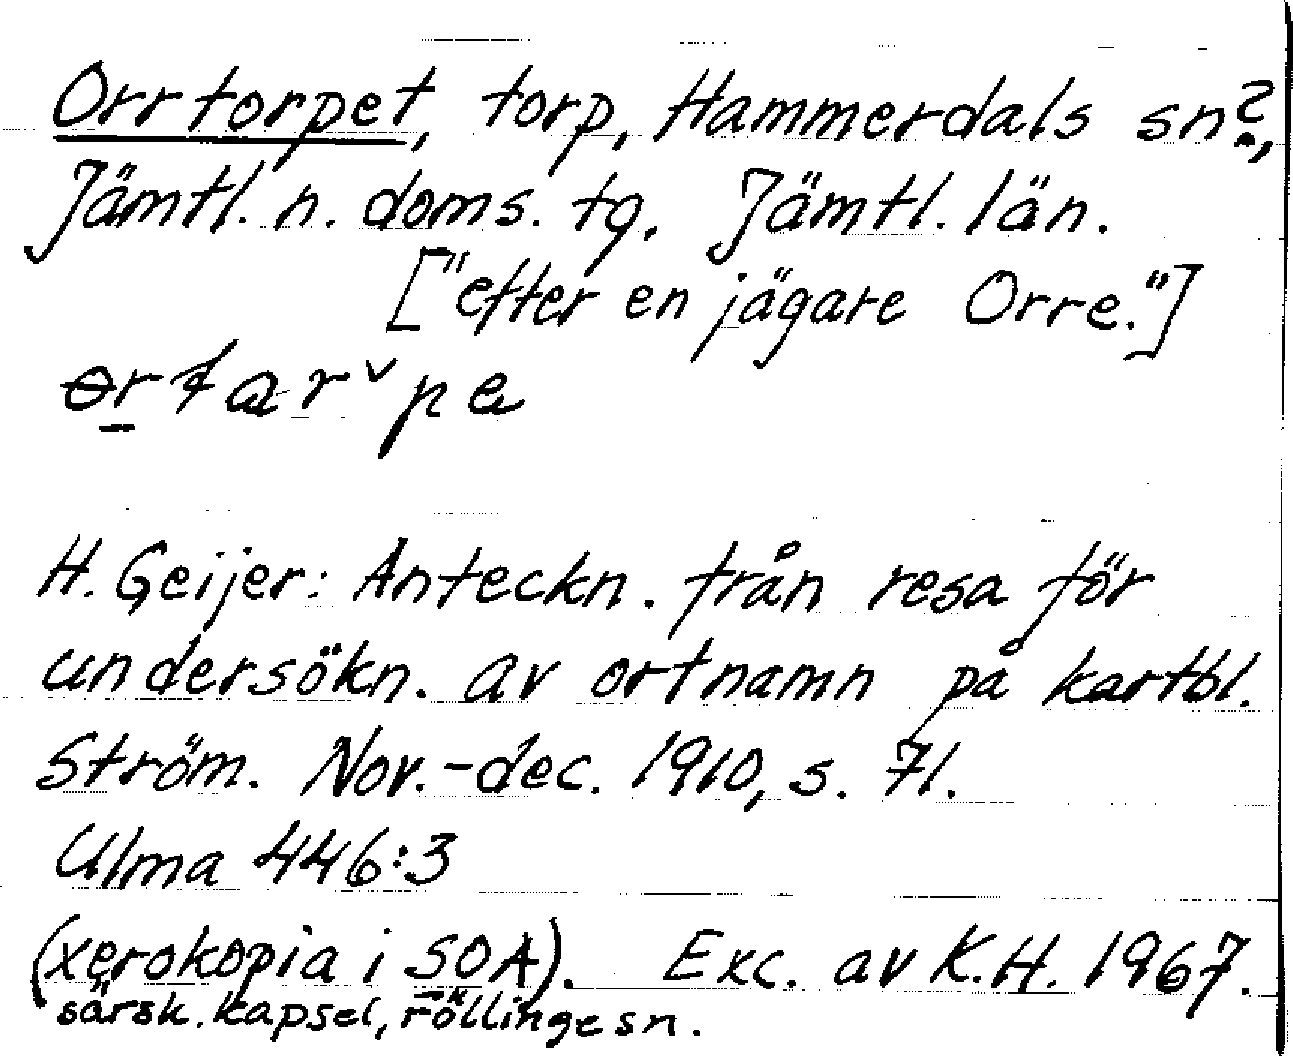 Orrtorpet, torp, Hammerdals sn?,
Jämtl. n. doms. tg, Jämtl. län.
["efter en jägare Orre."]
H. Geijer: Anteckn. från resa för
undersökn. av ortnamn på kartbl.
Ström. Nov.-dec. 1910, s. 71.
Ulma 446:3
(xerokopia i SOA). Exc. av K.H. 1967.
särsk. kapsel, röllinge sn.